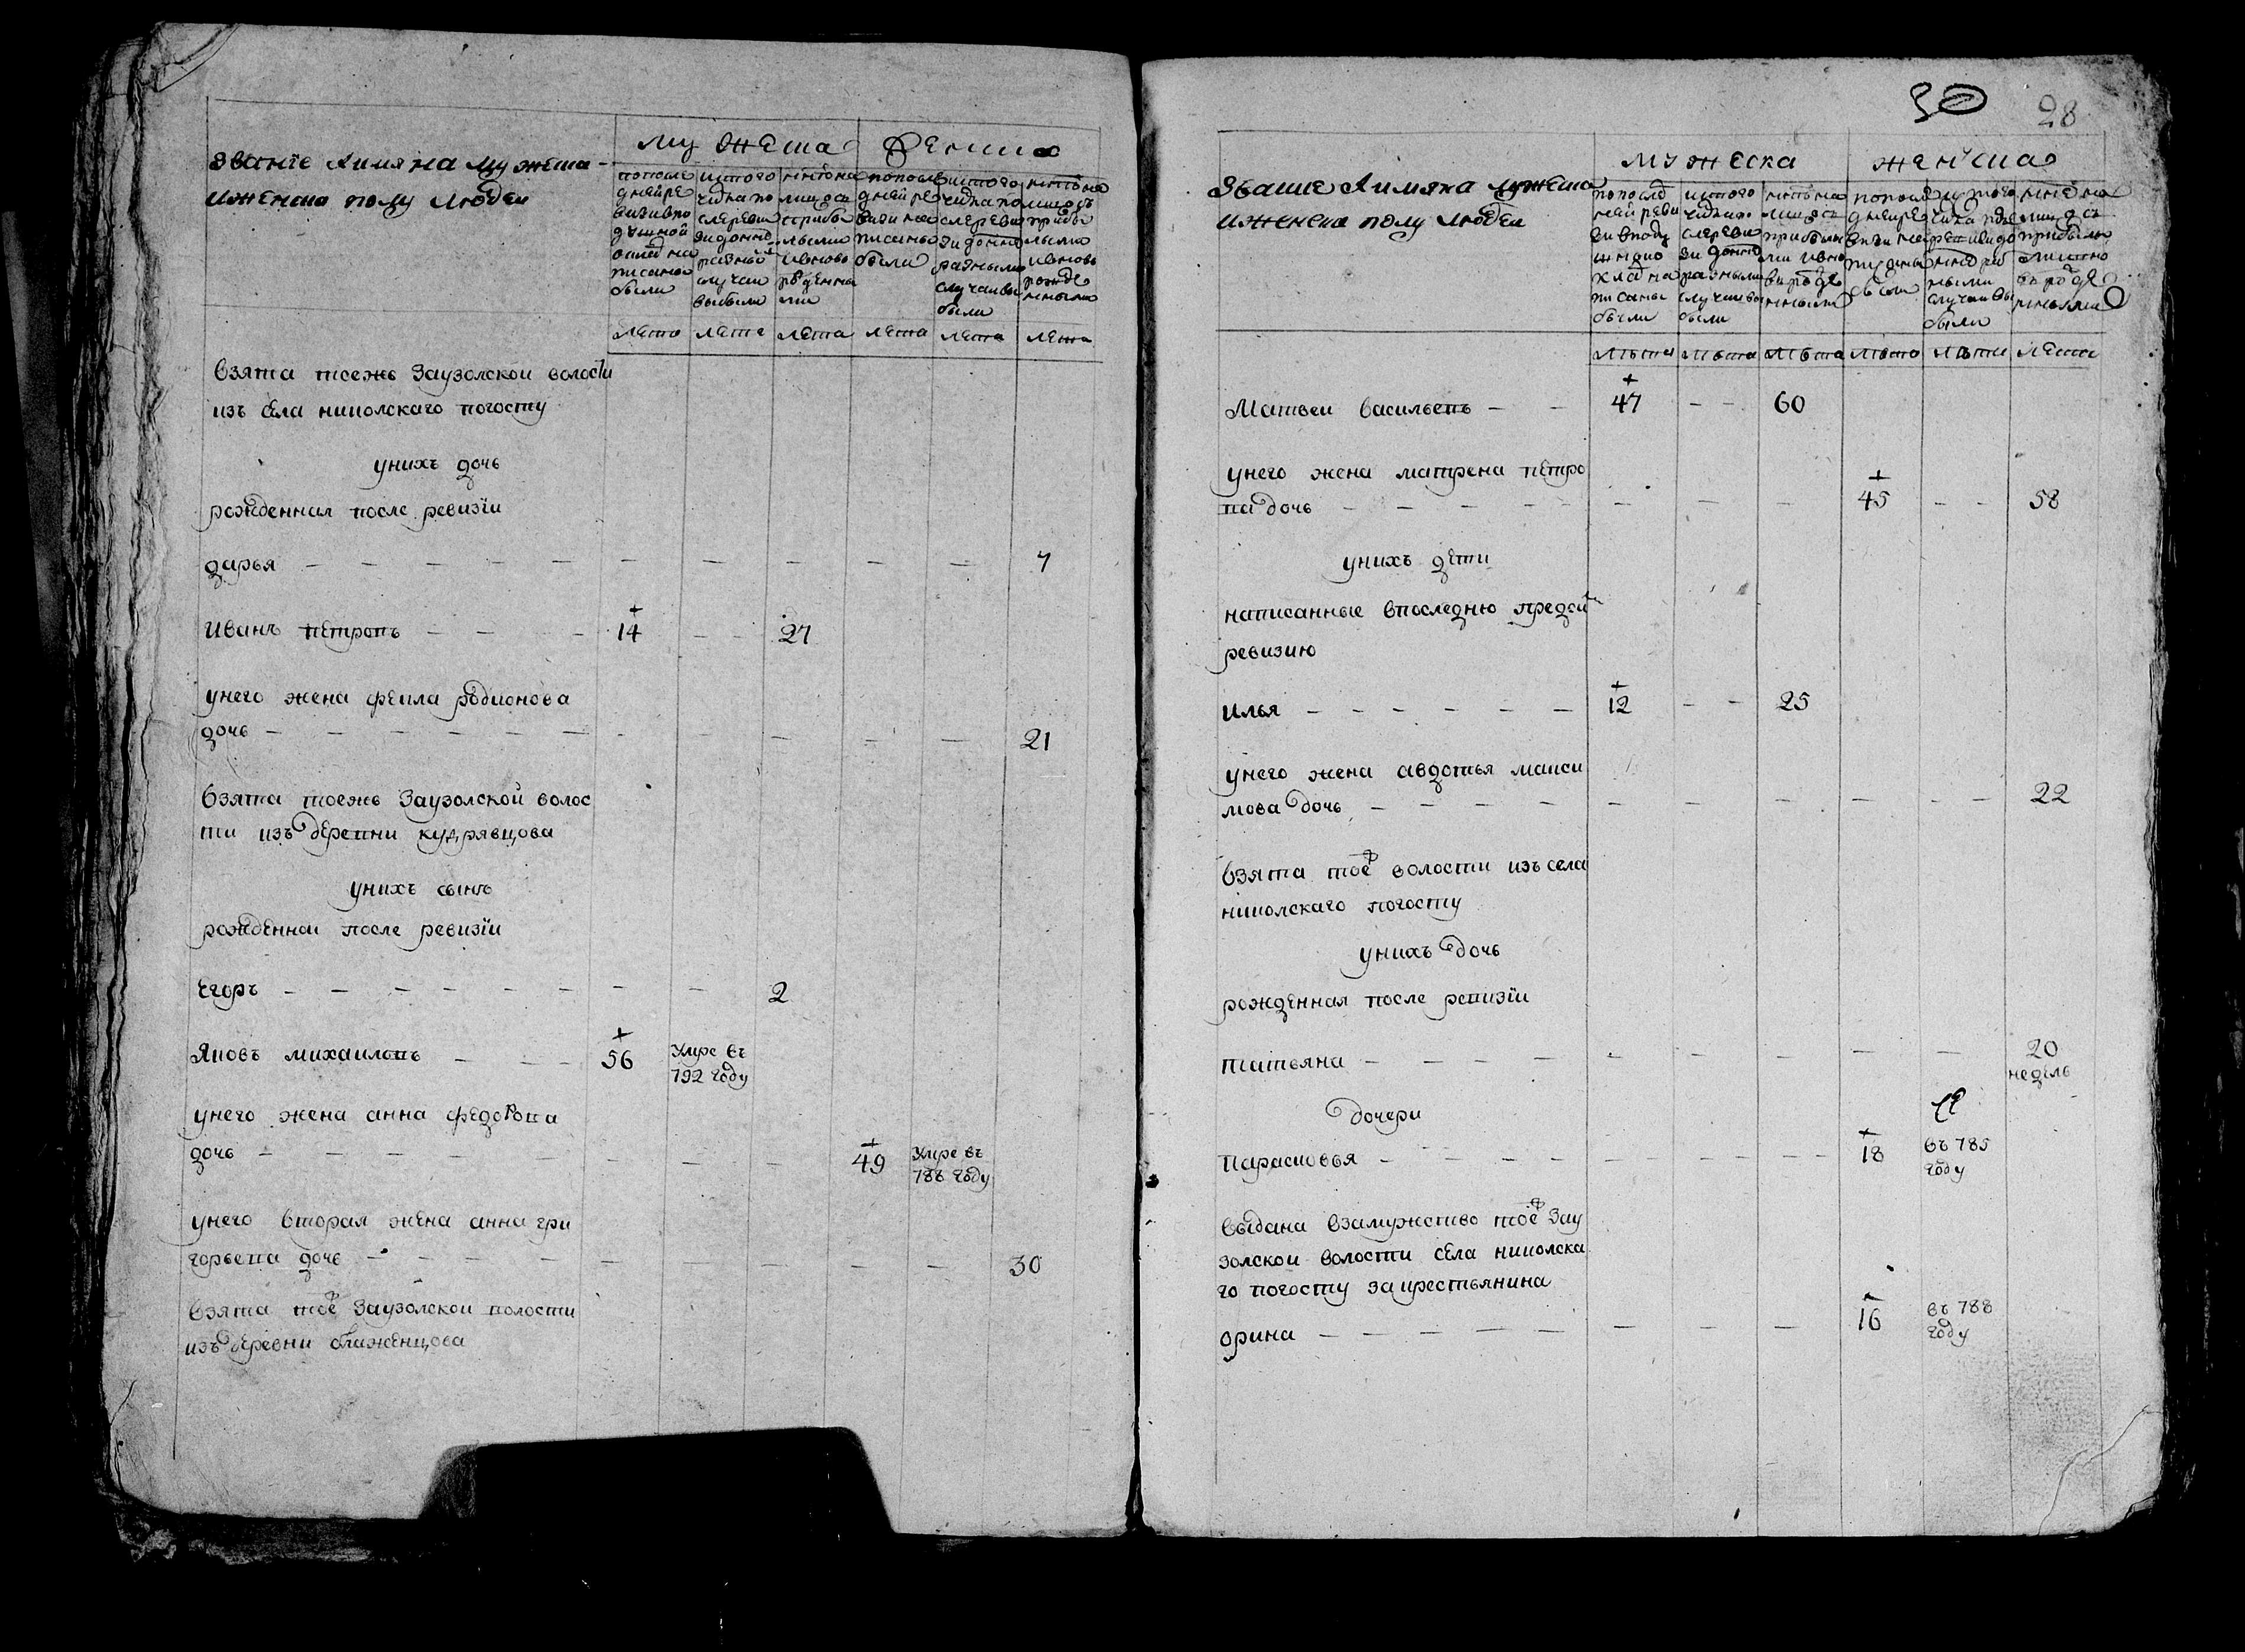 званїе Аимяна мужеска
Иженска полу людеи
мужеска женска
попосле
дней ре
визи впо
душной
оклад на
писаны
были
лета
истого
числа по
сле реви
зи донне
разными
случаи
выбыли
лета
ныне на
лицо съ
прибы
лыми
ивново
рожденны
ми
лета
попосле
дней ре
визи на
писаны
были
лета
истого
числа по
сле реви
зи донне
разными
случаи вы
были
лета
ныне на
лицо съ
прибы
лыми
ивновь
рожде
нными
лета
взята тоежъ Заузолскои волости
изъ села николскаго погосту
унихъ дочь
рожденная после ревизїи
дарья 7
Иванъ петровъ + 14 27
унего жена фекла родионова
дочь 21
взята тоежъ Заузолской волос
ти изъ деревни кудрявцова
унихъ сынъ
рожденнои после ревизїи
Егоръ 2
Яковъ михаиловъ + 56 Умре въ
792 году
унего жена анна федорова
дочь + 49 Умре въ
788 году
унего вторая жена анна гри
горьева дочь 30
взята тоеж Заузолскои волости
изъ деревни блаженцова
30 28
Звание Аимяна мужеска
Иженска полу людеи
мужеска женска
попослед
ней реви
зи вподу
шнои
клад на
писаны
были
лѣта
истого
числа по
сле реви
зи донне
разными
случаи вы
были
лѣта
ныне на
лицо съ
прибылы
ми ивно
вь рожде
нными
лѣта
попосле
дней ре
визи на
писаны
были
лѣта
истого
числа посл
ревизи до
нне раз
ными
случаи вы
были
лѣта
ныне на
лицо съ
прибылы
ми ивно
вь рожде
нными
лета
Матвеи васильевъ + 47 60
унего жена матрена петро
ва дочь + 45 58
унихъ дети
написанные впоследню предсим
ревизию
илья + 12 25
унего жена авдотья макси
мова дочь 22
взята тоеж волости изъ села
николскаго погосту
унихъ дочь
рожденная после ревизїи
татьяна 20
недель
дочери
парасковья + 18 въ 785
году
выдана взамужство тоеж Зау
золскои волости села николска
го погосту за крестьянина
орина + 16 въ 788
году